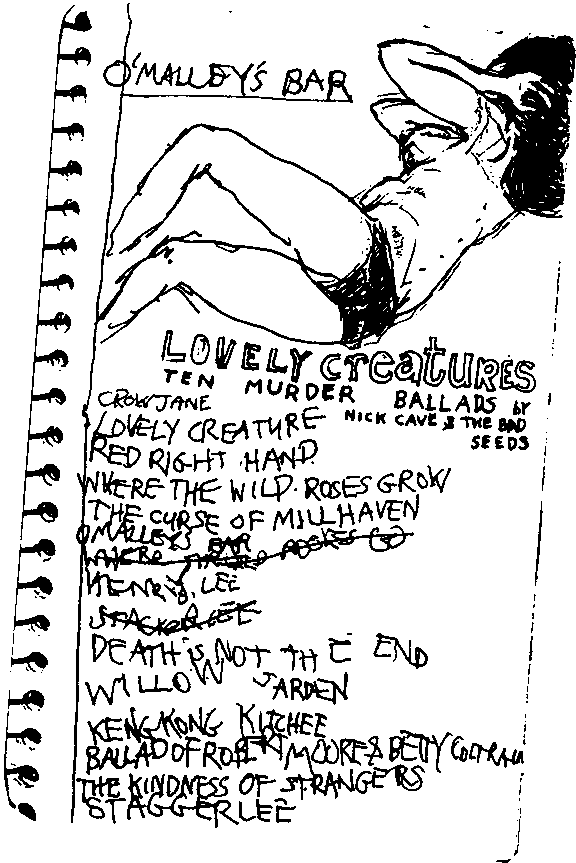 O'MALLEY'S BAR
LOVELY creatURES
TEN MURDER BALLADS by
NICK CAVE & THE BAD
SEEDS
CROW JANE
LOVELY CREATURE
RED RIGHT HAND
WHERE THE WILD ROSES GROW
THE CURSE OF MILLHAVEN
O'MALLEY'S BAR
WHERE
HENRY LEE
STACKO LEE
DEATH iS NOT THE END
WILLOW GARDEN
KENG KONG KITCHEE
BALLAD OF ROBERT MOORE & BETTY COLTRAIN
THE KINDNESS OF STRANGERS
STAGGER LEE